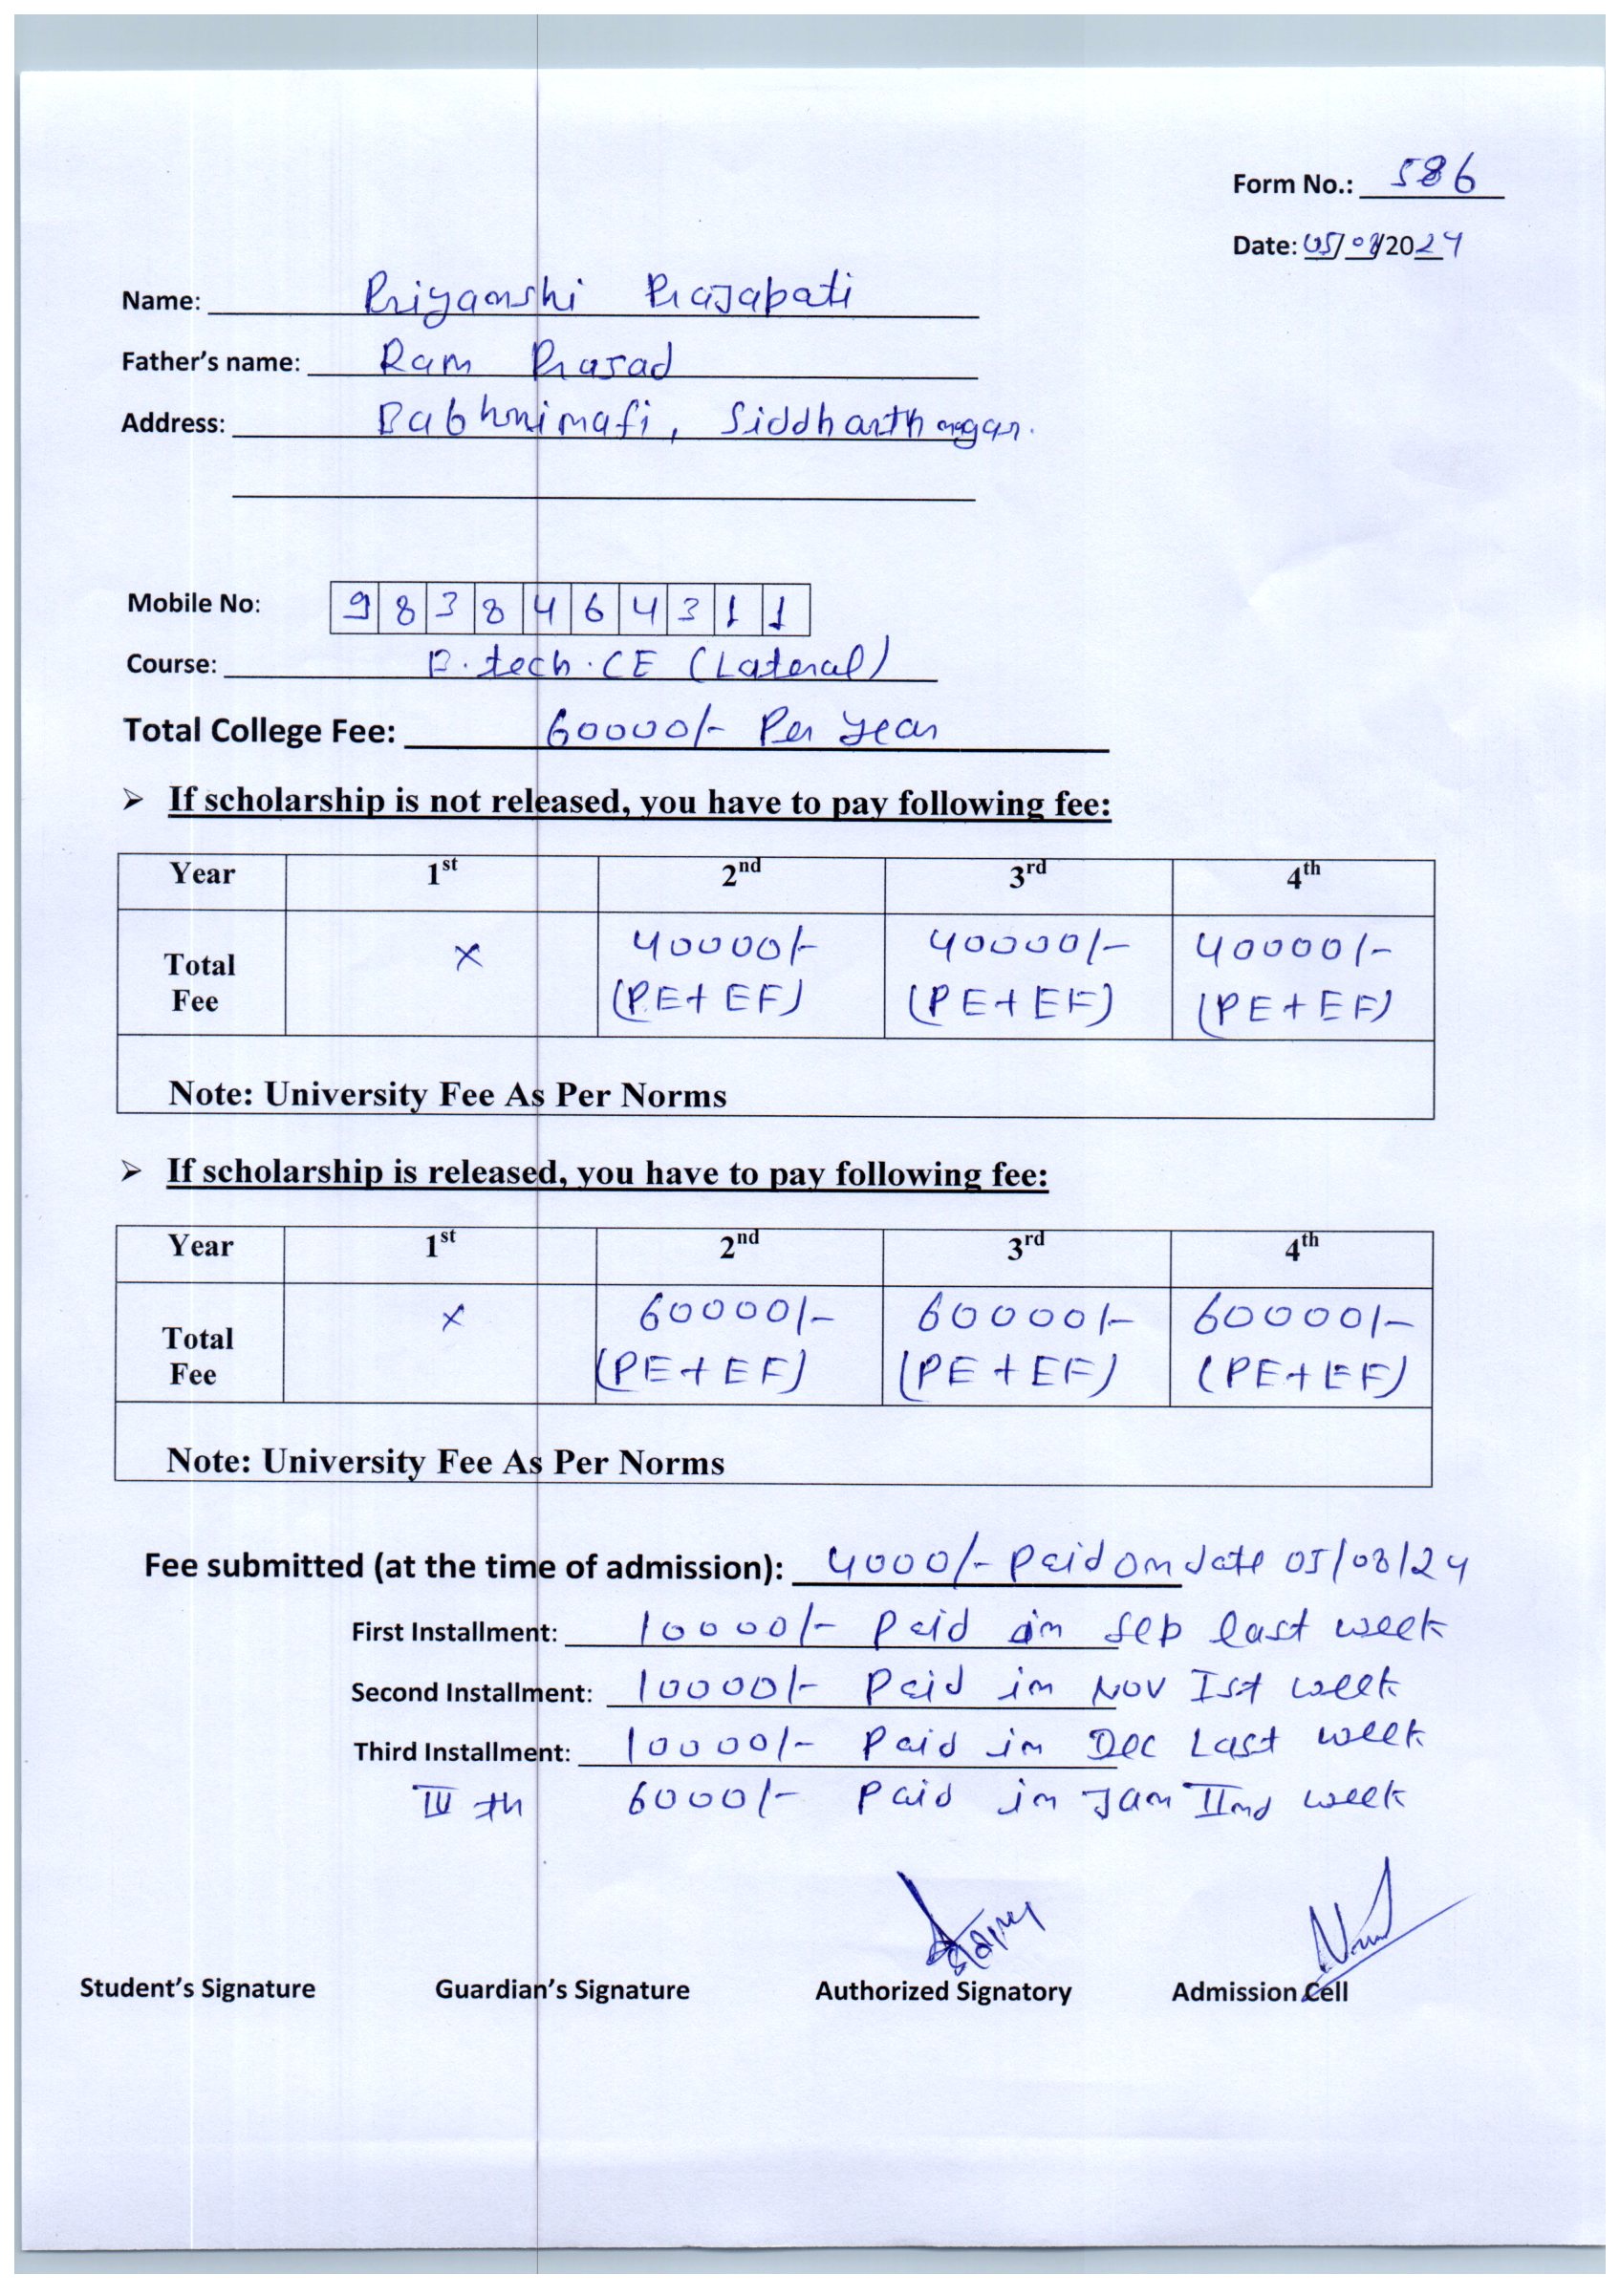 Form No.: 586
Date: 05/08/2024
Name: Priyanshi Prajapati
Father's name: Ram Prasad
Address: Babhnimafi, Siddharthnagar.
Mobile No: 9838464311
Course: B.tech.CE (Lateral)
Total College Fee: 60000/- Per year
➢ If scholarship is not released, you have to pay following fee:
Year 1st 2nd 3rd 4th
Total Fee × 40000/- (PE+EF) 40000/- (PE+EF) 40000/- (PE+EF)
Note: University Fee As Per Norms
➢ If scholarship is released, you have to pay following fee:
Year 1st 2nd 3rd 4th
Total Fee × 60000/- (PE+EF) 60000/- (PE+EF) 60000/- (PE+EF)
Note: University Fee As Per Norms
Fee submitted (at the time of admission): 4000/- Paid on date 05/08/24
First Installment: 10000/- Paid in Sep last week
Second Installment: 10000/- Paid in Nov Ist week
Third Installment: 10000/- Paid in Dec Last week
IV th 6000/- Paid in Jan IInd week
Student's Signature Guardian's Signature Authorized Signatory Admission Cell